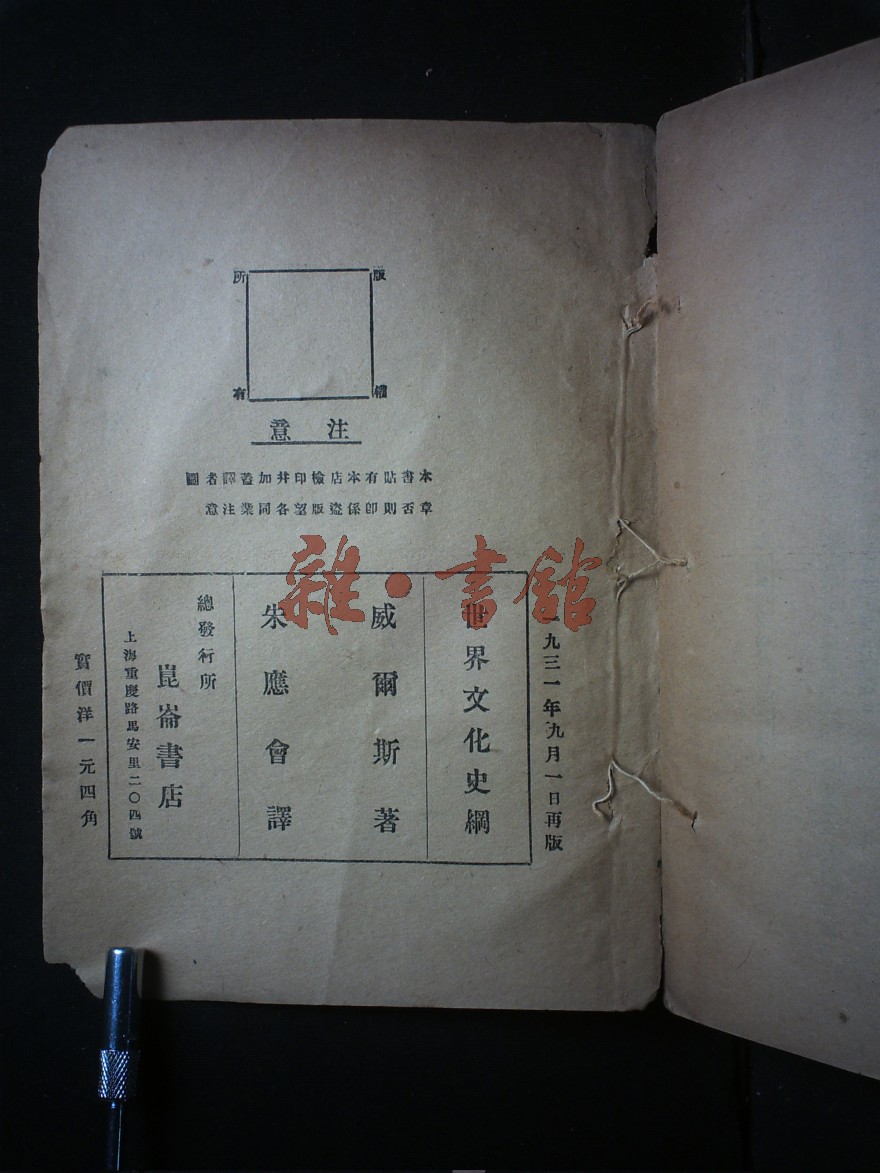 版權所有
注意
本書貼有本店檢印并加蓋譯者圖
章否則即係盜版望各同業注意
一九三一年九月一日再版
世界文化史綱
威爾斯著
朱應會譯
總發行所
崑崙書店
上海重慶路馬安里二〇四號
實價洋一元四角
雜·書館